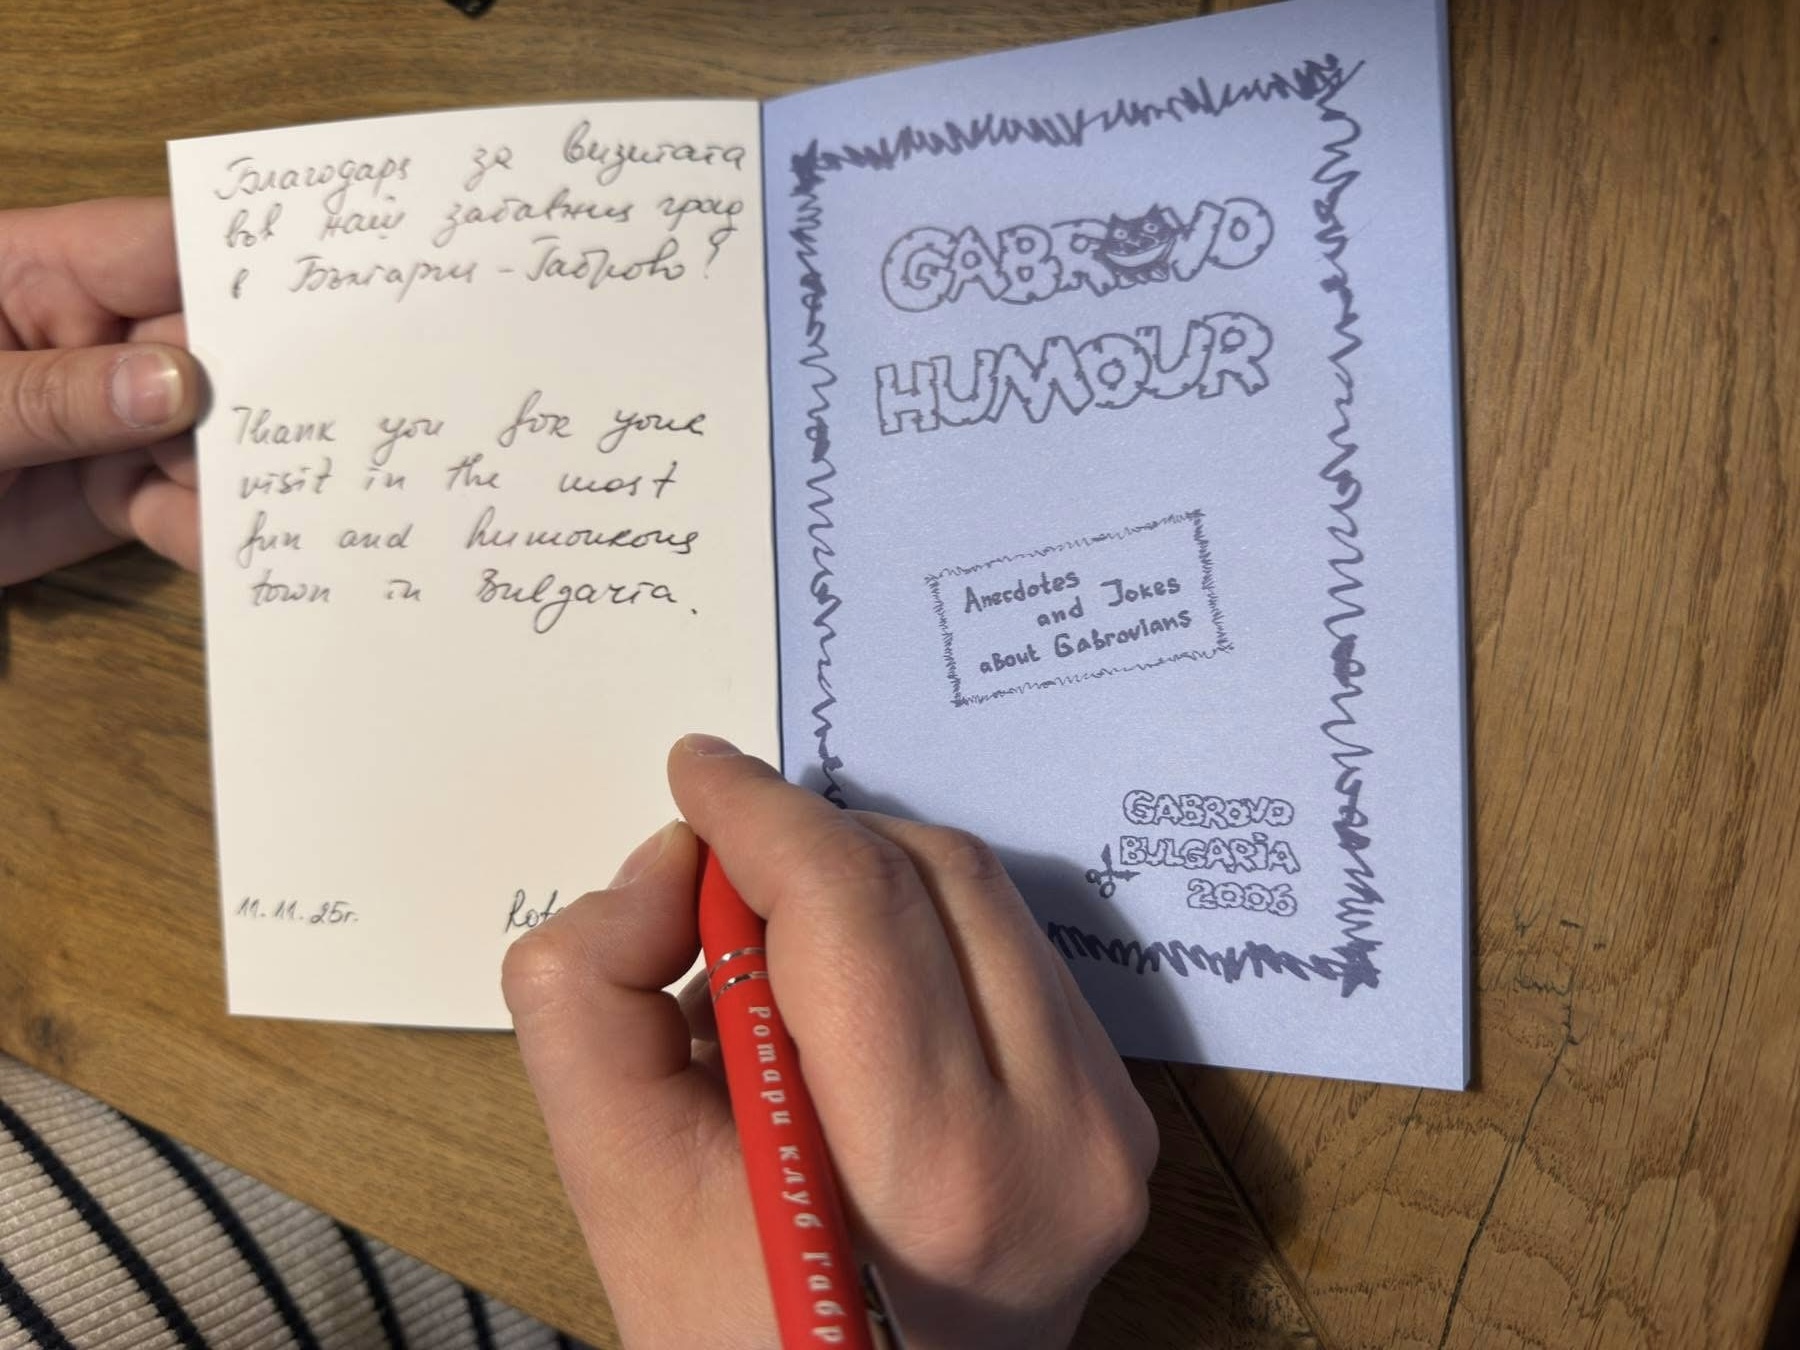 Благодаря за визитата
във наш забавния град
в България - Габрово!
Thank you for your
visit in the most
fun and humourous
town in Bulgaria.
11.11.25г.
GABROVO
HUMOUR
Anecdotes
and Jokes
about Gabrovians
GABROVO
BULGARIA
2006
Ротари клуб Габр